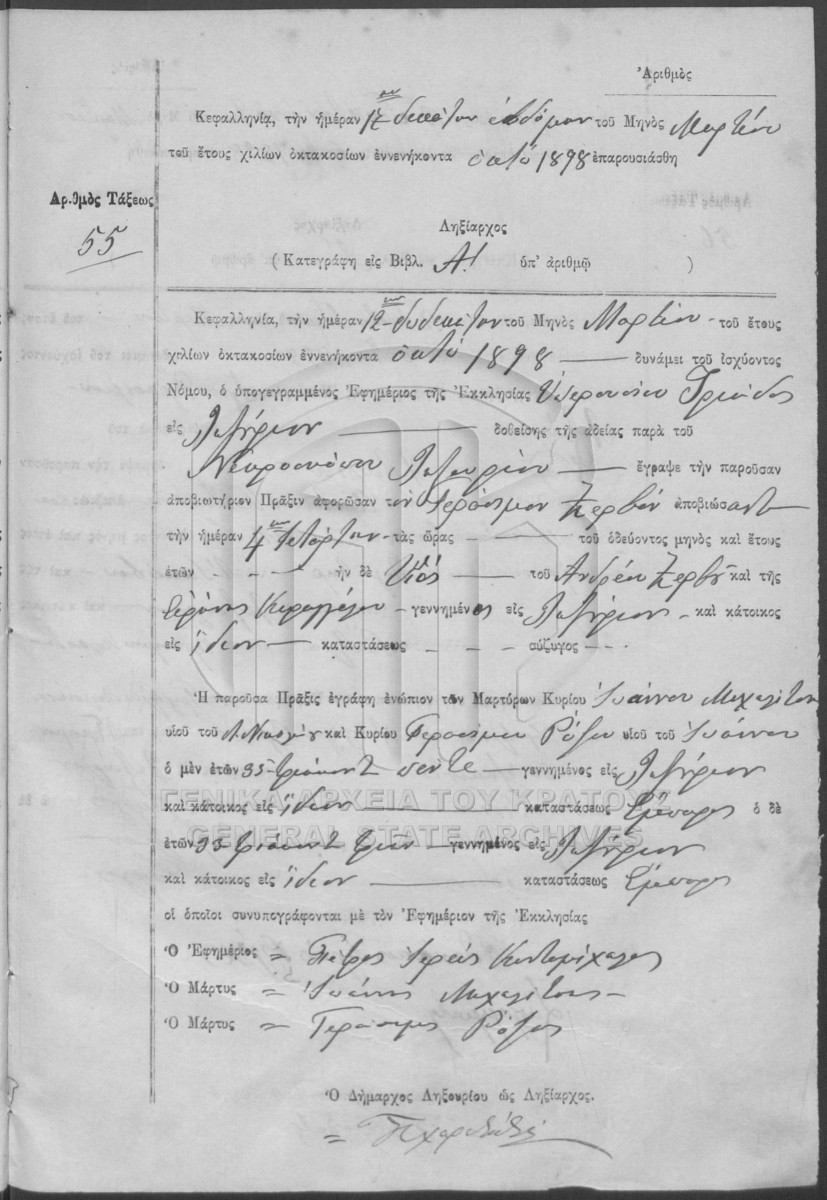 Ἀριθμὸς
Κεφαλληνίᾳ, τὴν ἡμέραν 17 δεκάτην ἑβδόμην τοῦ Μηνὸς Μαρτίου
τοῦ ἔτους χιλίων ὀκτακοσίων ἐννενήκοντα ὀκτώ 1898 ἐπαρουσιάσθη
Ἀριθμὸς Τάξεως
55
Ληξίαρχος
( Κατεγράφη εἰς Βιβλ. Α! ὑπ' ἀριθμῷ )
Κεφαλληνία, τὴν ἡμέραν 12 δωδεκάτην τοῦ Μηνὸς Μαρτίου τοῦ ἔτους
χιλίων ὀκτακοσίων ἐννενήκοντα ὀκτώ 1898 δυνάμει τοῦ ἰσχύοντος
Νόμου, ὁ ὑπογεγραμμένος Ἐφημέριος τῆς Ἐκκλησίας Ὑπερουσίου Τριάδος
εἰς Ληξούριον δοθείσης τῆς ἀδείας παρὰ τοῦ
Ληξουρίου ἔγραψε τὴν παροῦσαν
ἀποβιωτήριον Πρᾶξιν ἀφορῶσαν τὸν Γεράσιμον Ζερβόν ἀποβιώσαντ
τὴν ἡμέραν 4 τετάρτην τὰς ὥρας τοῦ ὁδεύοντος μηνὸς καὶ ἔτους
ἐτῶν - - - ἦν δὲ Υἱός τοῦ Ἀνδρέου Ζερβοῦ καὶ τῆς
γεννημένος εἰς Ληξούριον καὶ κάτοικος
εἰς ἴδιον καταστάσεως - - - σύζυγος - -
Ἡ παροῦσα Πρᾶξις ἐγράφη ἐνώπιον τῶν Μαρτύρων Κυρίου Ἰωάννου Μιχαλίτση
υἱοῦ τοῦ καὶ Κυρίου Γερασίμου Ρόζου υἱοῦ τοῦ Ἰωάννου
ὁ μὲν ἐτῶν 35 τριάκοντ πέντε γεννημένος εἰς Ληξούριον
καὶ κάτοικος εἰς ἴδιον καταστάσεως Ἔμπορος ὁ δὲ
ἐτῶν 33 τριάκοντ τριῶν γεννημένος εἰς Ληξούριον
καὶ κάτοικος εἰς ἴδιον καταστάσεως Ἔμπορος
οἱ ὁποῖοι συνυπογράφονται μὲ τὸν Ἐφημέριον τῆς Ἐκκλησίας
Ὁ Ἐφημέριος = Πέτρος Ἱερεύς Κοντομίχαλος
Ὁ Μάρτυς = Ἰωάννης Μιχαλίτσης
Ὁ Μάρτυς = Γεράσιμος Ρόζος
Ὁ Δήμαρχος Ληξουρίου ὡς Ληξίαρχος.
ΓΕΝΙΚΑ ΑΡΧΕΙΑ ΤΟΥ ΚΡΑΤΟΥΣ
GENERAL STATE ARCHIVES